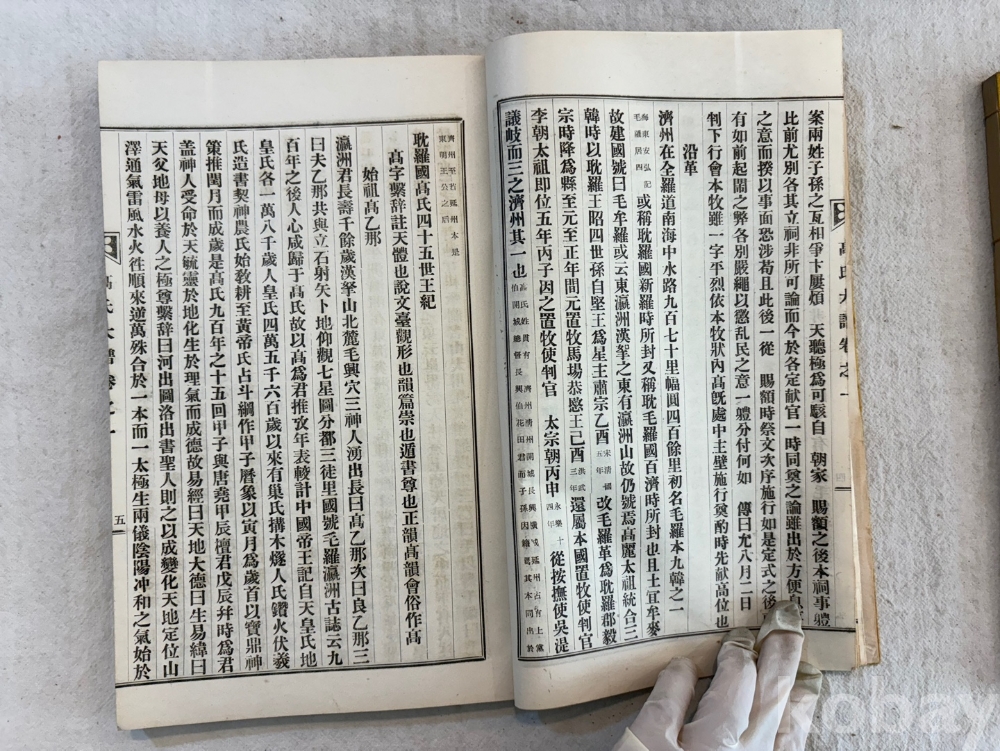 高氏大譜卷之一
案兩姓子孫之互相爭卞屢煩 天聽極爲可駭自有 朝家 賜額之後本祠事軆
比前尤別各其立祠非所可論而今於各定献官一時同奠之論雖出於方便息
之意而揆以事面恐涉苟且此後一從 賜額時祭文次序施行如是定式之後
有如前起鬧之弊各別嚴繩以懲乱民之意一軆分付何如 傳曰允八月二日
判下行會本牧雖一字平烈依本牧狀內高旣處中主壁施行奠酌時先献高位也
沿革
濟州在全羅道南海中水路九百七十里幅圓四百餘里初名毛羅本九韓之一
海東安弘記毛羅居四 或稱耽羅國新羅時所封又稱耽毛羅國百濟時所封也且土宜牟麥
故建國號曰毛牟羅或云東瀛洲漢拏之東有瀛洲山故仍號焉高麗太祖統合三
韓時以耽羅王昭四世孫自堅王爲星主肅宗乙酉 五年 改毛羅革爲耽羅郡毅
宗時降爲縣至元至正年間元置牧馬場恭愍王己酉 洪武三年 還屬本國置牧使判官
李朝太祖即位五年丙子因之置牧使判官 太宗朝丙申 永樂十四年 從按撫使吳湜
議岐而三之濟州其一也 高氏姓貫有濟州清州開城長興橫城延州占有上黨伯開城 督長興伯花田君而子孫因籍焉其本同出於
濟州至若延州本是東明王公之后
耽羅國高氏四十五世王紀
高字繫辞註天體也說文臺觀形也韻篇崇也遁書尊也正韻高韻會俗作髙
始祖高乙那
瀛洲君長壽千餘歲漢拏山北麓毛興穴三神人湧出長曰高乙那次曰良乙那三
曰夫乙那共與立石射矢卜地仰觀七星圖分都三徒里國號毛羅瀛洲古誌云九
百年之後人心咸歸于高氏故以高爲君推攷年表較計中國帝王記自天皇氏地
皇氏各一萬八千歲人皇氏四萬五千六百歲以來有巢氏搆木燧人氏鑽火伏羲
氏造書契神農氏始敎耕至黃帝氏占斗綱作甲子曆象以寅月爲歲首以寶鼎神
策推閏月而成歲是高氏九百年之十五回甲子與唐堯甲辰檀君戊辰幷時爲君
盖神人受命於天毓靈於地化生於理氣而成德故易經曰天地大德曰生易緯曰
天父地母以養人之極尊繫辞曰河出圖洛出書聖人則之以成變化天地定位山
澤通氣雷風水火徃順來逆萬殊合於一本而一太極生兩儀陰陽冲和之氣始於
高氏大譜卷之一 五
kobay